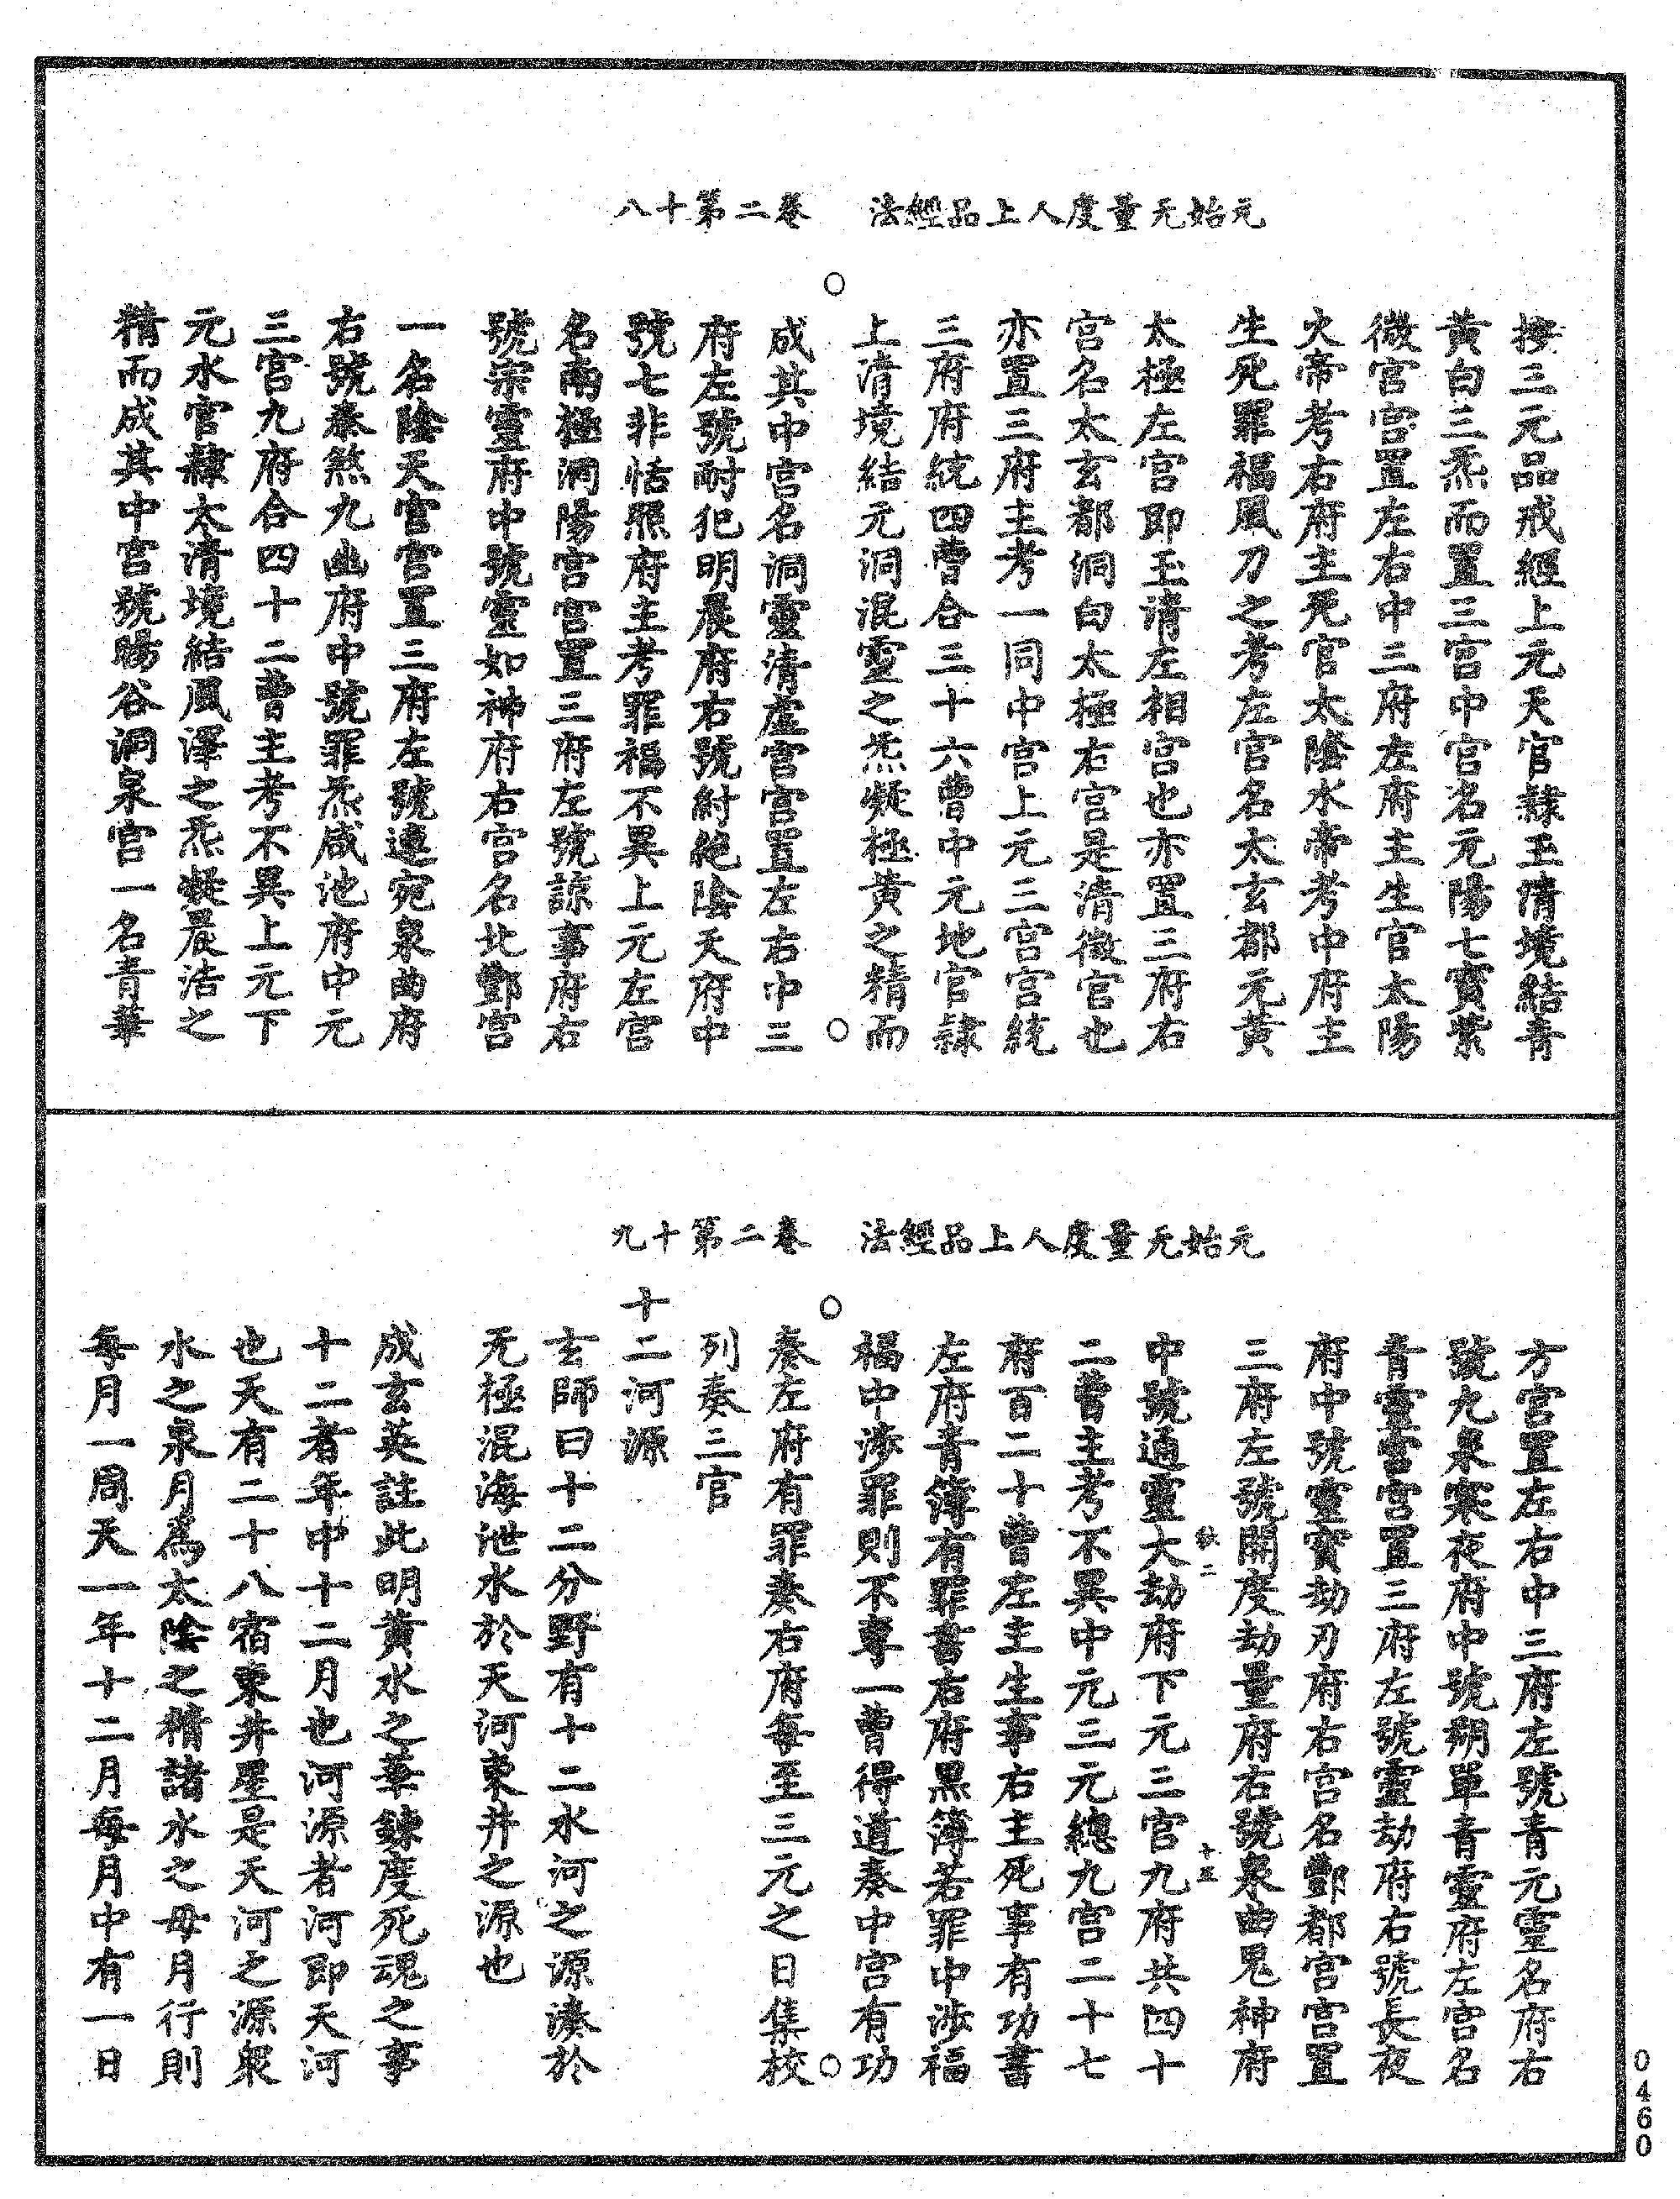 元始无量度人上品經法　卷二第十八
按三元品戒經上元天官隸玉清境結青
黃白三炁而置三宮中宮名元陽七寶紫
微宮宮置左右中三府左府主生官太陽
火帝考右府主死官太陰水帝考中府主
生死罪福風刀之考左宮名太玄都元黃
太極左宮即玉清左相宮也亦置三府右
宮名太玄都洞白太極右宮是清微宮也
亦置三府主考一同中宮上元三宮宮統
三府府統四曹合三十六曹中元地官隸
上清境結元洞混靈之炁凝極黃之精而
成其中宮名洞靈清虛宮宮置左右中三
府左號耐犯明晨府右號紂絕陰天府中
號七非恬照府主考罪福不異上元左宮
名南極洞陽宮宮置三府左號諒事府右
號宗靈府中號靈如神府右宮名北酆宮
一名陰天宮宮置三府左號連宛泉曲府
右號泰煞九幽府中號罪炁咸池府中元
三宮九府合四十二曹主考不異上元下
元水官隸太清境結風澤之炁凝晨浩之
精而成其中宮號暘谷洞泉宮一名青華
元始无量度人上品經法　卷二第十九
方宮置左右中三府左號青元靈名府右
號九泉寒夜府中號朔單青靈府左宮名
青靈宮宮置三府左號靈劫府右號長夜
府中號靈寶劫刃府右宮名酆都宮宮置
三府左號開度劫量府右號泉曲鬼神府
中號通靈大劫府下元三官九府共四十
二曹主考不異中元三元總九宮二十七
府百二十曹左主生事右主死事有功書
左府青簿有罪書右府黑簿若罪中涉福
福中涉罪則不專一曹得道奏中宮有功
奏左府有罪奏右府每至三元之日集校
列奏三官
十二河源
玄師曰十二分野有十二水河之源湊於
无極混海泄水於天河東井之源也
成玄英註此明黃水之華鍊度死魂之事
十二者年中十二月也河源者河即天河
也天有二十八宿東井星是天河之源衆
水之泉月為太陰之精諸水之母月行則
每月一周天一年十二月每月中有一日
0460